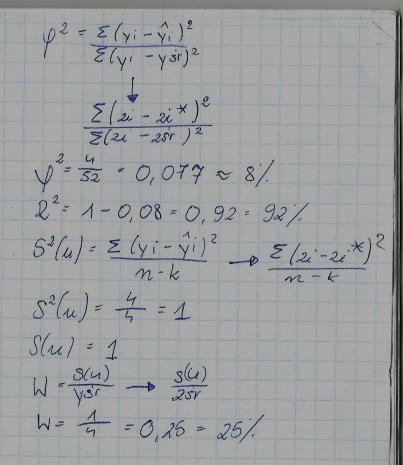 φ² = Σ(yi - ŷi)² / Σ(yi - yśr)²
↓
Σ(zi - zi*)² / Σ(zi - zśr)²
φ² = 4/52 = 0,077 ≈ 8%
R² = 1 - 0,08 = 0,92 = 92%
S²(u) = Σ(yi - ŷi)² / n-k → Σ(zi - zi*)² / n-k
S²(u) = 4/4 = 1
S(u) = 1
W = S(u)/yśr → S(u)/zśr
W = 1/4 = 0,25 = 25%